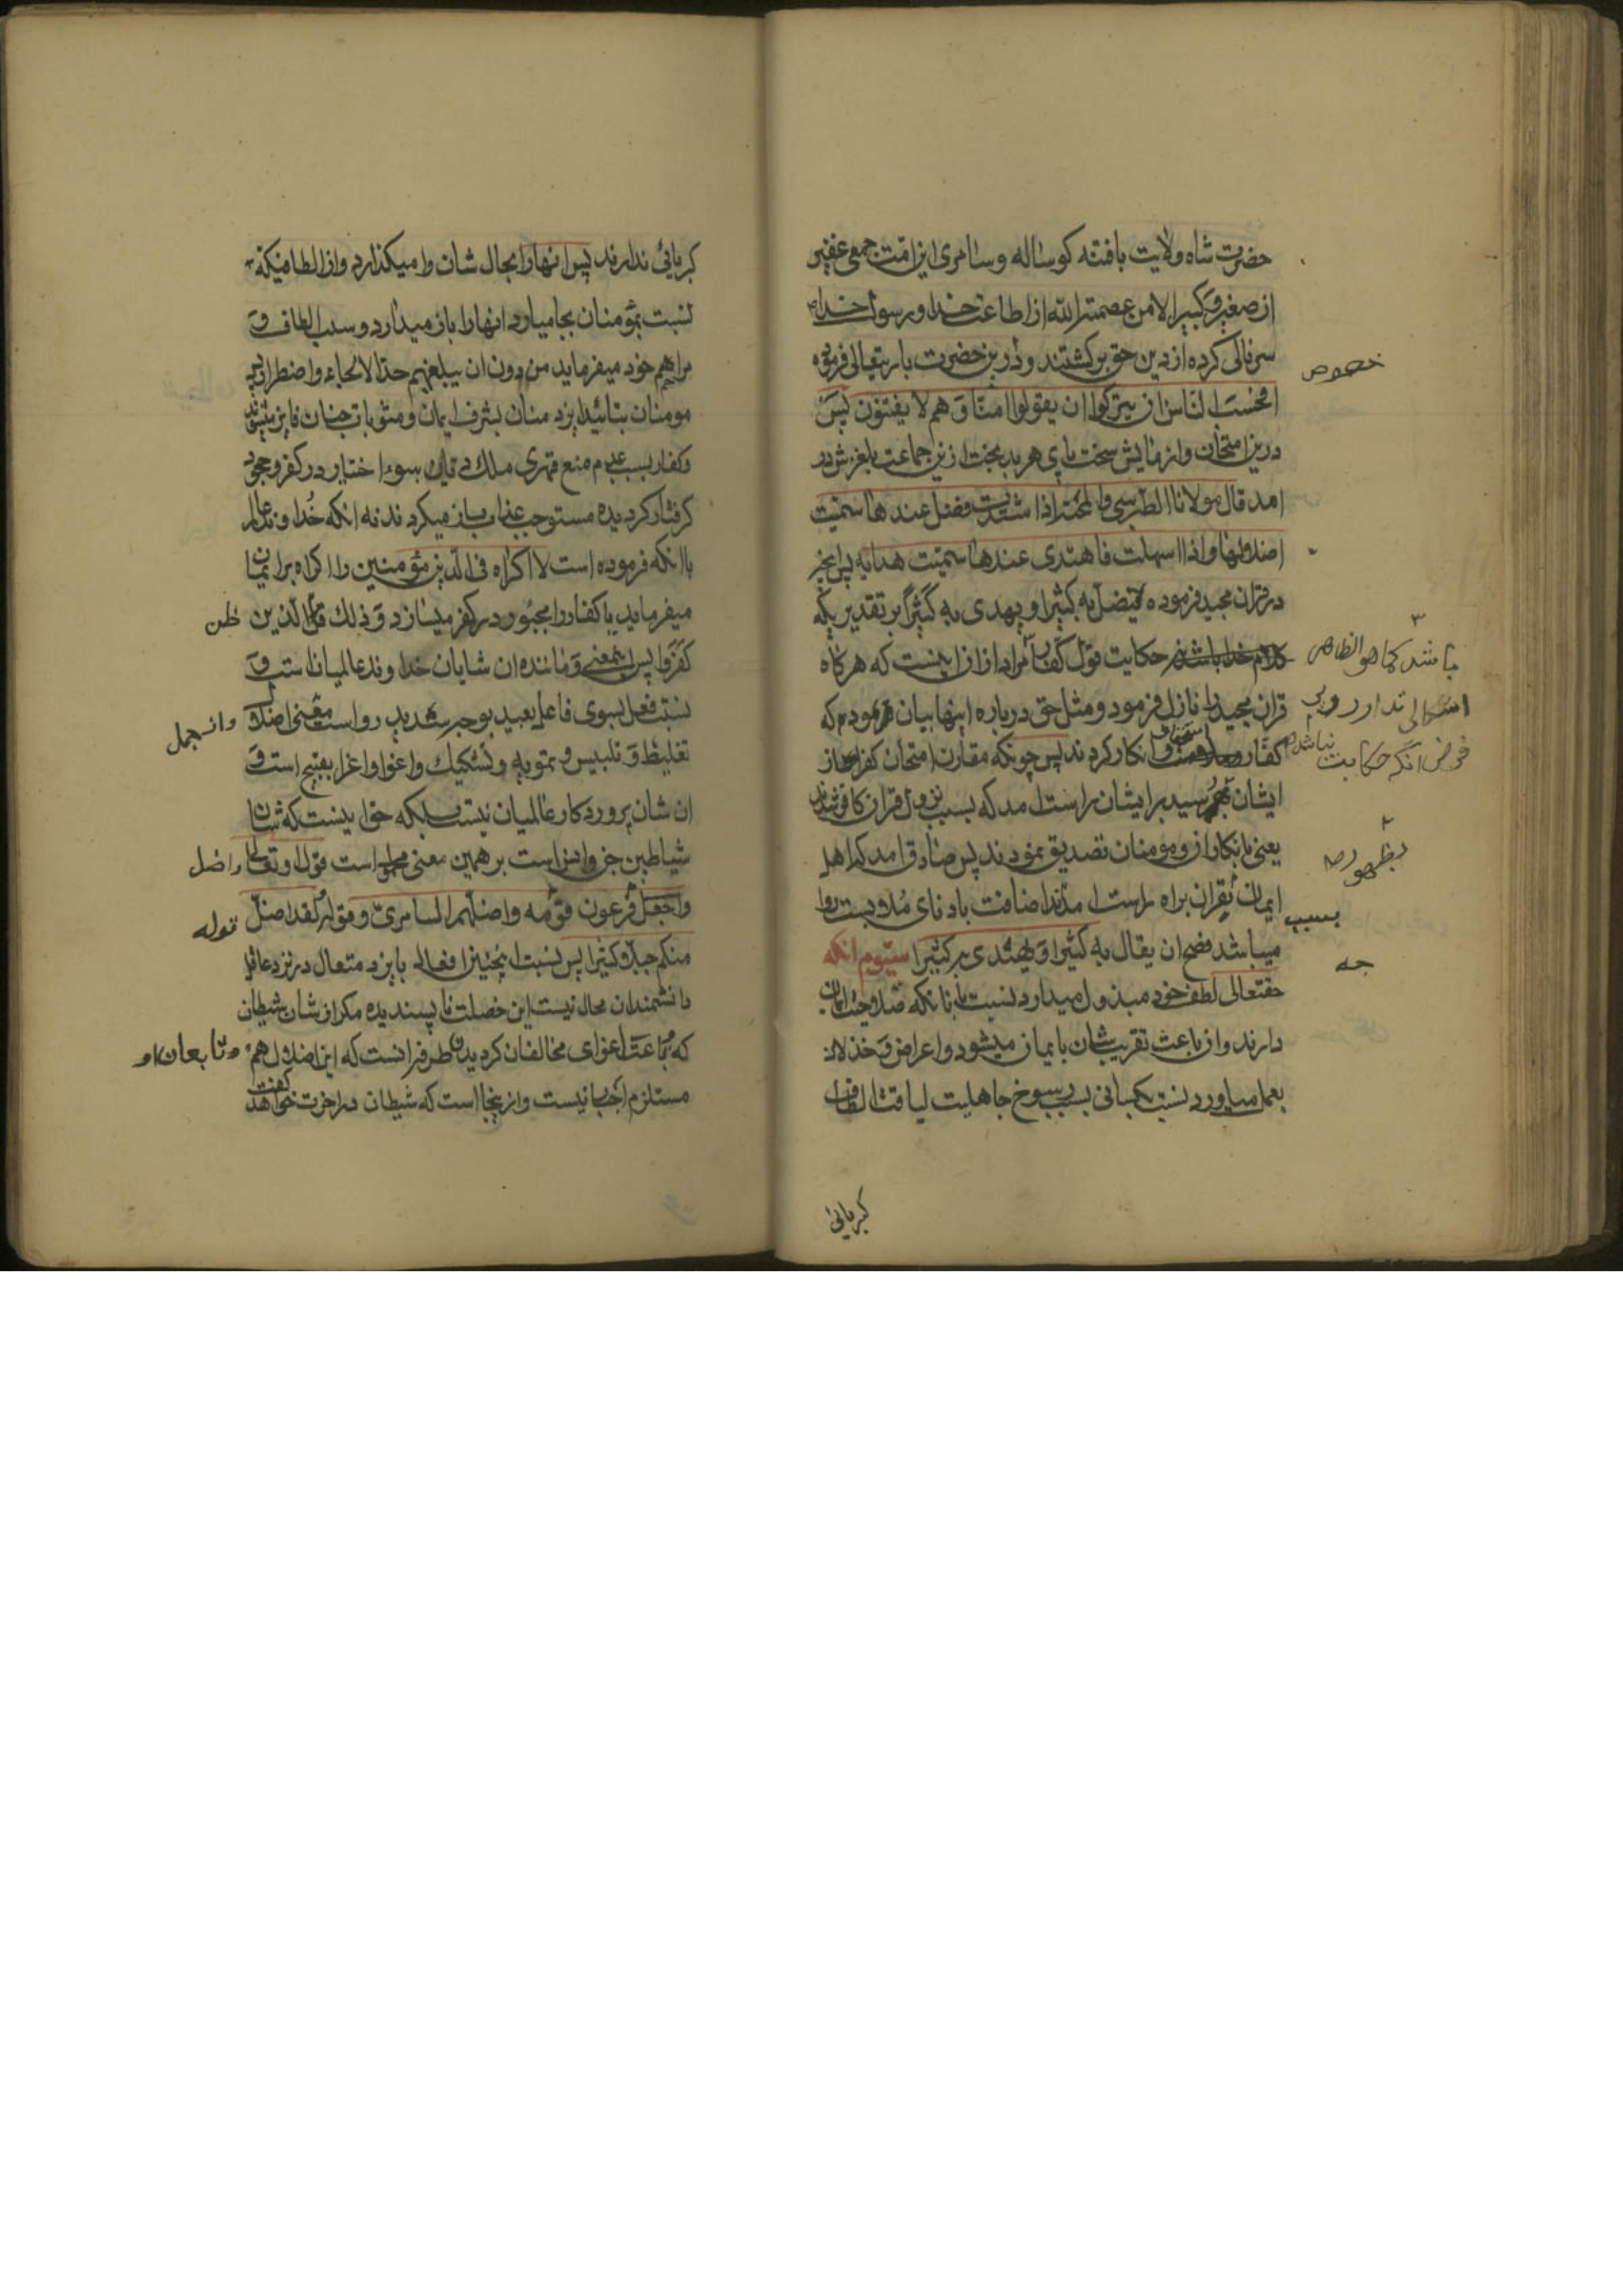 حضرت شاه ولایت یافته کوساله وسامری این امّت جمعی غفیر
از صغیر و کبیر الا من عصمته الله از اطاعت خدا و رسول خدا
سرتابی کرده از دین حق برکشتند و درین خصوص حضرت باریتعالی فرموده
افحسب النّاس ان یترکوا ان یقولوا امنّا وَ هم لا یفتنون پس
درین امتحان و ازمایش سخت پای هر بدبخت ازین جماعت بلغزش در
امد قال مولانا الطبرسی والمحنة اذا اشتدت فضل عندها سمیّت
اضلالا واذا اسهلت فاهتدی عندها سمیّت هدایه پس انچه
در قران مجید فرموده یضلّ به کثیرا و یهدی به کثیرا بر تقدیریکه
کلام خدا باشد نه حکایت قول کفار مراد ازان اینست که هرکاه
باشد کما هو الظاهر
قران مجید را نازل فرمود و مثل حق درباره اینها بیان فرمود که
اشکالی ندارد و بر
کفّار انکار کردند پس چونکه مقارن امتحان کفر
فرض انکه حکایت نباشد
ایشان بظهور رسید برایشان راست امد که بسبب نزول قران کافر شدند
یعنی بانکار از و مومنان تصدیق نمودند پس صادق امد که اهل
ایمان بقران براه راست امدند اضافت بادنای ملابست روا
بسبب
میباشد فصح ان یقال یه کثیرا وَ یهتدی به کثیرا سیّوم انکه
حقتعالی لطف خود مبذول میدارد نسبت بانانکه صلاحیت ایمان
جه
دارند و ان باعث تقریب شان بایمان میشود و اعراض وَ خذلان
بعمل میاورد نسبت بکسانی بسبب رسوخ جاهلیت لیاقت الطاف
کبریائی
کبریائی ندارند پس انها را بحال شان وا میکذارد و از الطافیکه
نسبت بمؤمنان بجا میارد انها را باز میدارد و سلب الطاف وَ
مراهم خود میفرماید من دون ان یبلغهم حدّ الالجاء و اضطرار پس
مومنان بتائید ایزد منان بشرف ایمان و مثوبات جنان فایز میشوند
و کفار بسبب عدم منع قهری ملک دیان بسوء اختیار در کفر و جحود
کرفتار کردیده مستوجب عذاب میکردند نه انکه خدا وند عالم
باانکه فرموده است لا اکراه فی الدین مؤمنین را اکراه بر ایمان
میفرماید یا کفار را مجبور در کفر میسازد وَ ذلک ظن الّذین
کفروا پس اینمعنی وَ مانند ان شایان خدا وند عالمیان است وَ
نسبت فعل بسوی فاعل بعید بوجه شدید رواست معنی اضلال وانهمل
تغلیط وَ تلبیس و تمویه و تشکیک و اغوا و اغرا بقبیح است وَ
ان شان پروردکار عالمیان نیست بلکه حق اینست که شان
شیاطین جن و انس است بر همین معنی محمول است قول او تعالی و اضل
فرعون قومه و اضلّهم السامریّ و قوله لقد اضلّ
منکم جبلّا کثیرا پس نسبت اینچنین افعال بایزد متعال در نزد عاقل
دانشمندان محال نیست این خصلت ناپسندیده مکر از شان شیطان و تابعان او
که باعث اغوای مخالفان کردیده طرفه تر انست که این اضلال هم
مستلزم اجبار نیست و ازینجا است که شیطان در اخرت خواهد کفت